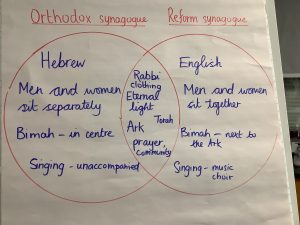 Orthodox synagogue
Hebrew
Men and women
sit separately
Bimah - in centre
Singing - unaccompanied
Rabbi
clothing
Eternal
light
Torah
Ark
prayer,
community
Reform synagogue
English
Men and women
sit together
Bimah - next to
the Ark
Singing - music
choir